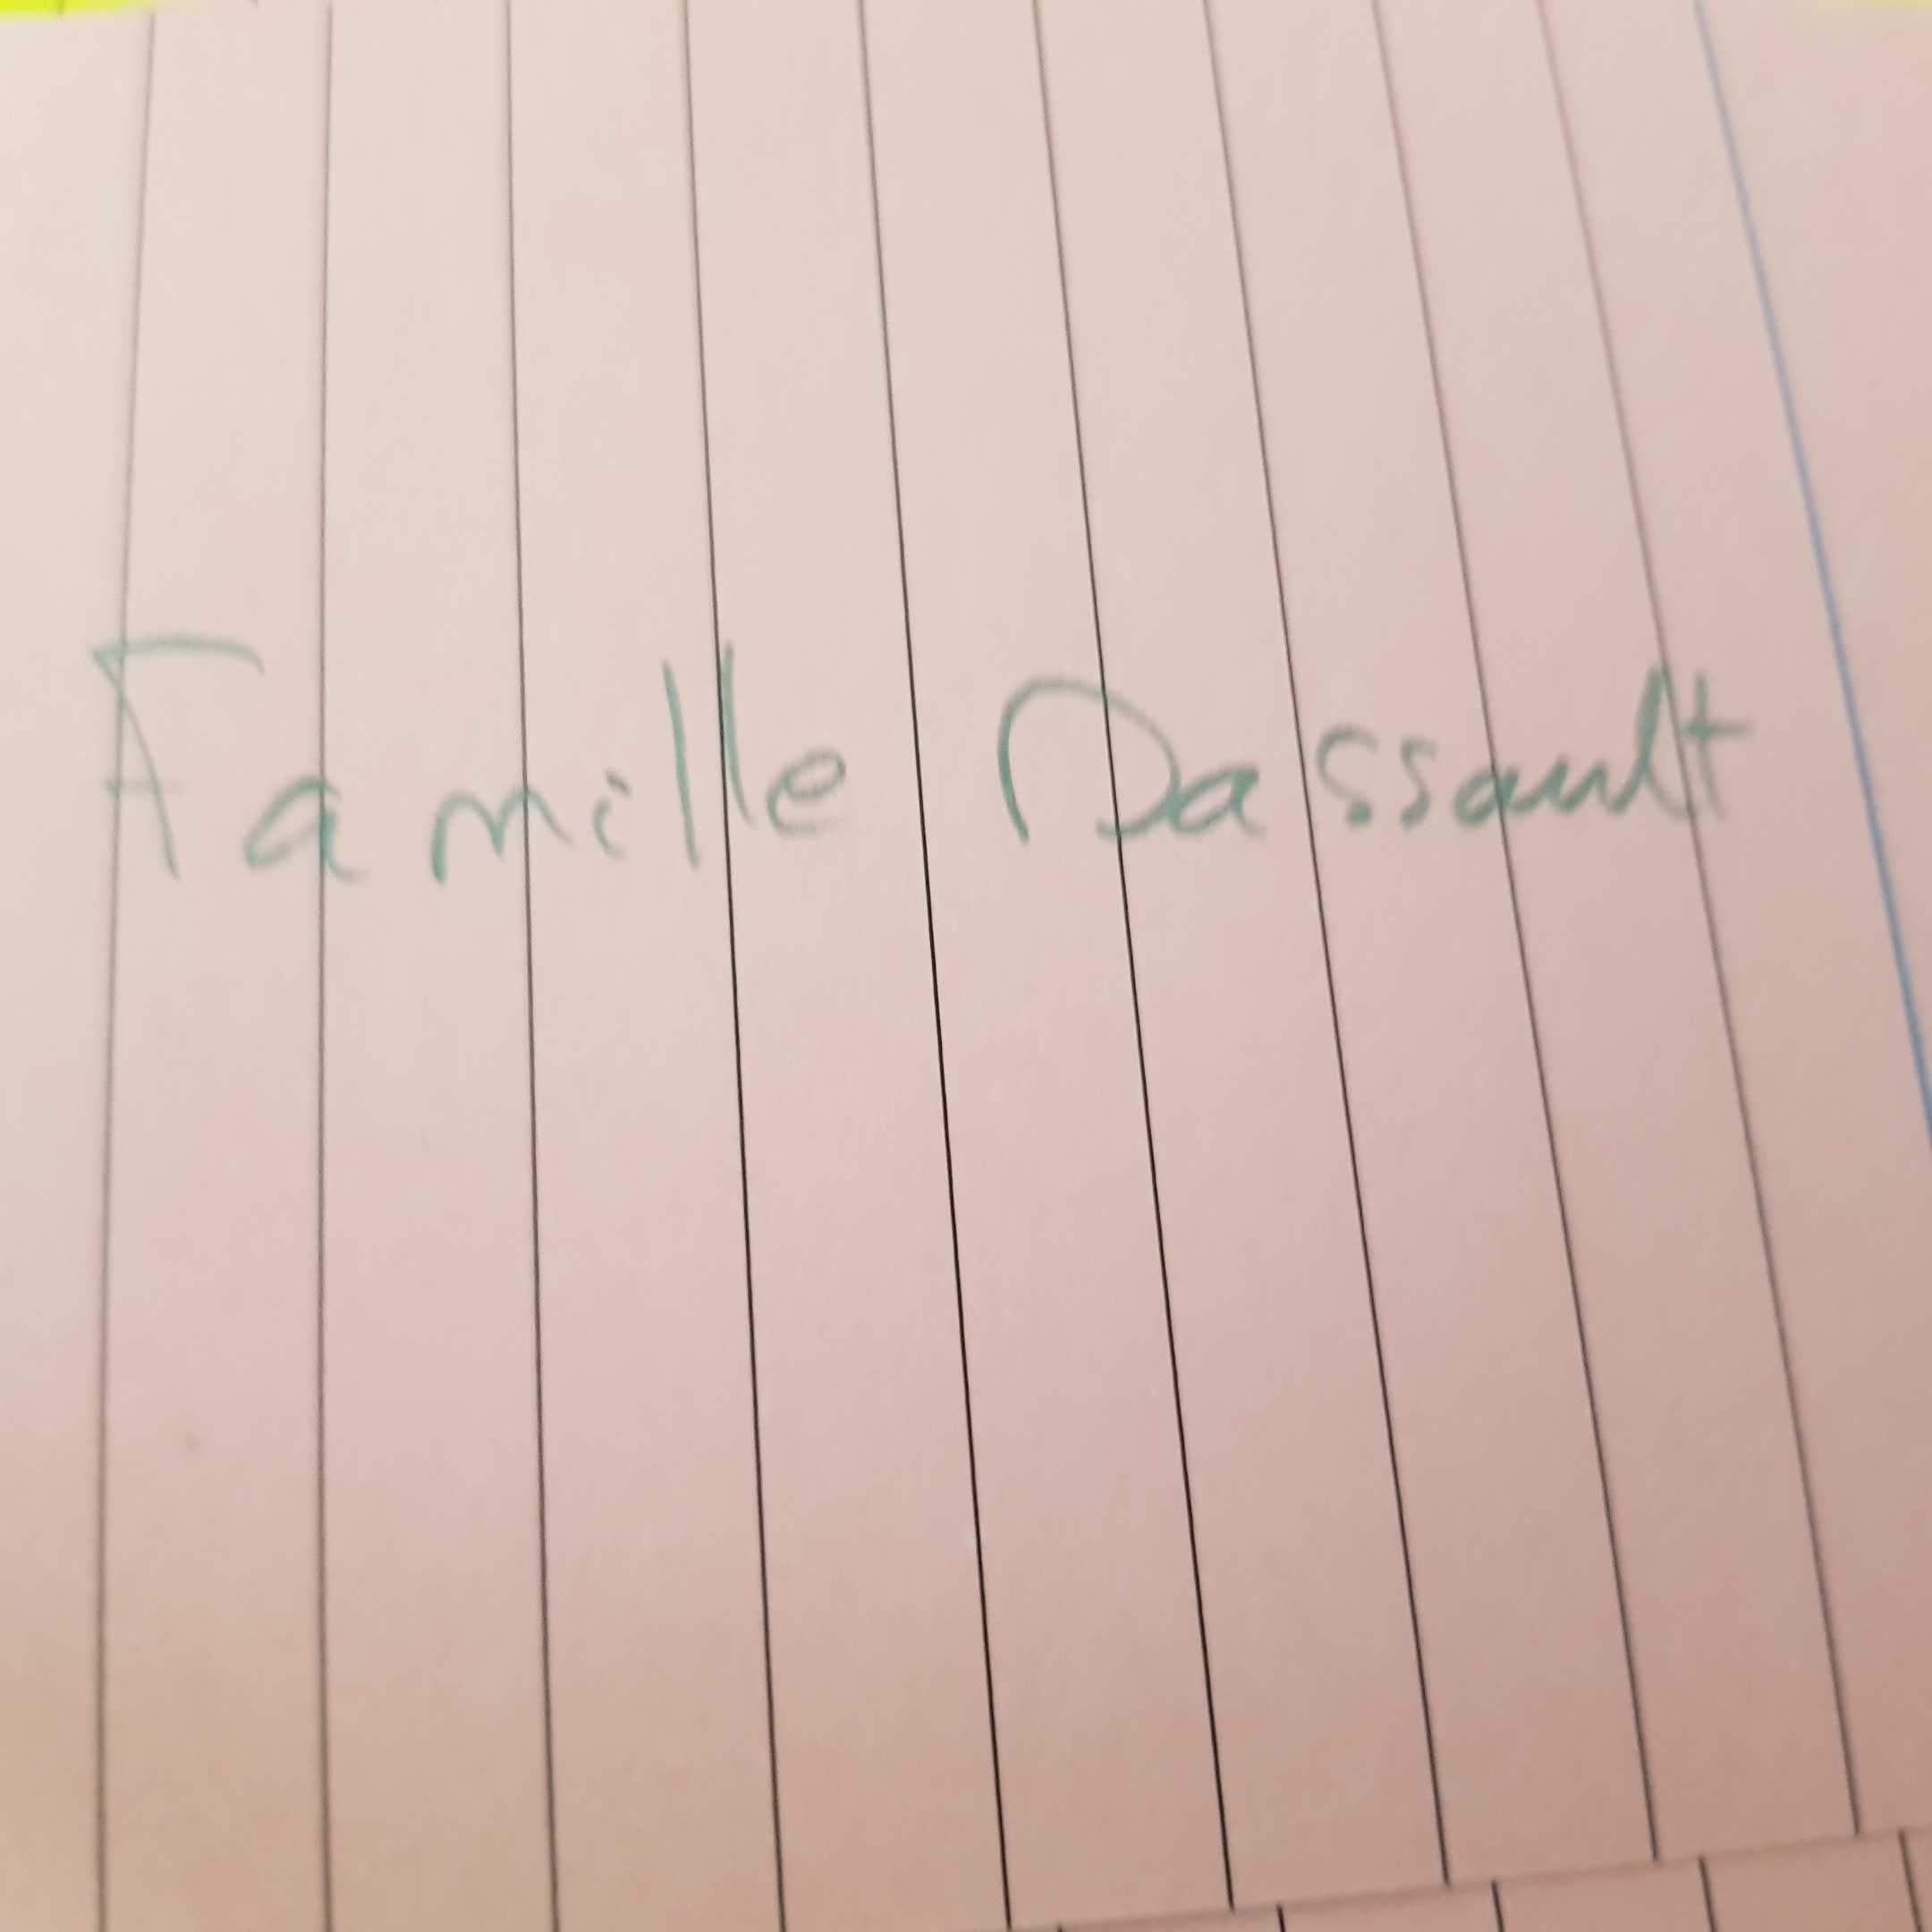 Famille Dassault